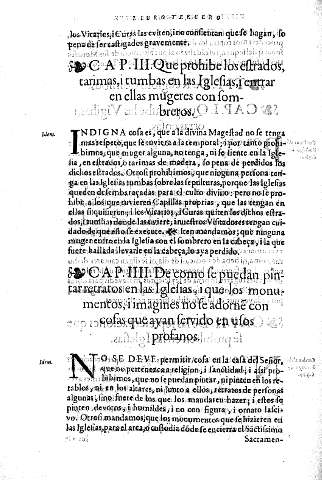 LIBRO TERCERO
los Vicarios, i Curas las eviten, i no consientan que se hagan, so
pena de ser castigados gravemente.
CAP. III. Que prohibe los estrados,
tarimas, i tumbas en las Iglesias, i entrar
en ellas mugeres con som-
breros.
Idem.
INDIGNA cosa es, que a la divina Magestad no se tenga
mas respeto, que se tuviera a la temporal; i por tanto prohi-
bimos, que muger alguna, no tenga, ni se siente en la Igle-
sia, en estrados, o tarimas de madera, so pena de perdidos los
dichos estrados. Otrosi prohibimos, que ninguna persona tenga
en las Iglesias tumbas sobre las sepulturas, porque las Iglesias
queden desembaraçadas para el culto divino: pero no se pro-
hibe, a los que tuvieren Capillas proprias, que las tengan en
ellas si quisieren; i los Vicarios, i Curas quiten los dichos estra-
dos, i tumbas donde las uviere; i nuestros Visitadores tengan cui-
dado de que assi se execute. Iten mandamos, que ninguna
muger entre en la Iglesia con el sombrero en la cabeça, i la que
fuere hallada llevarle en la cabeça, lo aya perdido.
CAP. IIII. De como se puedan pin-
tar retratos en las Iglesias, i que los monu-
mentos, i imagines no se adornen con
cosas que ayan servido en usos
profanos.
Idem.
NO SE DEVE permitir cosa en la casa del Señor,
que no pertenezca a religion, i sanctidad; i assi pro-
hibimos, que no se puedan pintar, ni pinten en los re-
tablos, ni en los altares, ni junto a ellos, retratos de personas
algunas, sino fuere de los que los mandaren hazer; i estos se
pinten devotos, i humildes, i no con figura, i ornato lasci-
vo. Otrosi mandamos, que los monumentos que se hizieren en
las Iglesias, para el arca, o custodia donde se encierra el Sanctissimo
Sacramen-